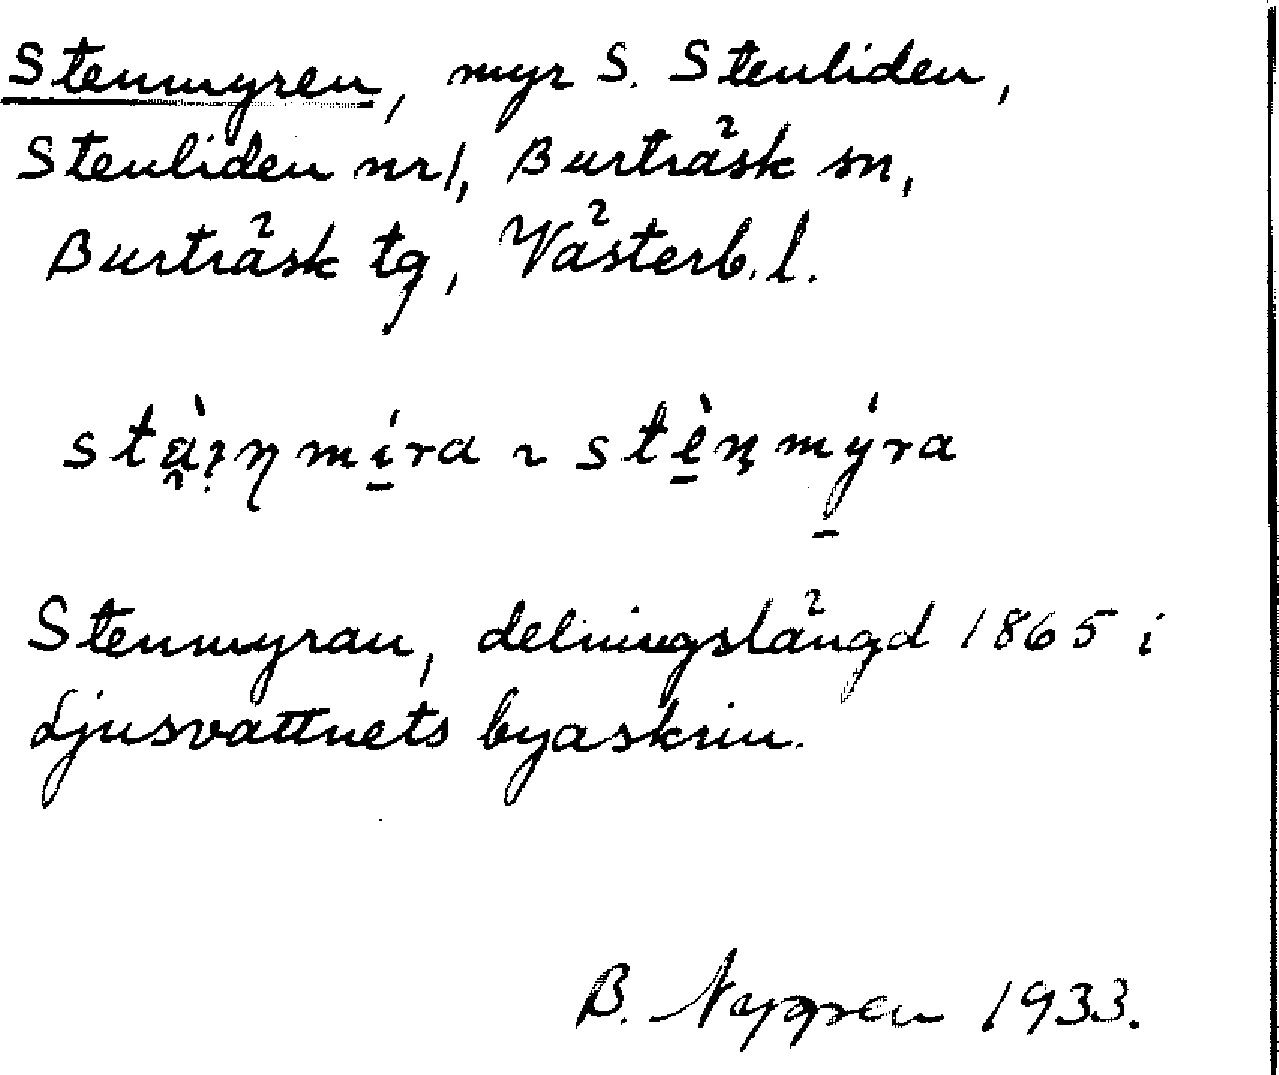 Stenmyren, myr S. Stenliden,
Stenliden nr 1, Burträsk sn,
Burträsk tg, Västerb. l.
Stenmyran, delningslängd 1865 i
Ljusvattnets byaskrin.
B. Nygren 1933.